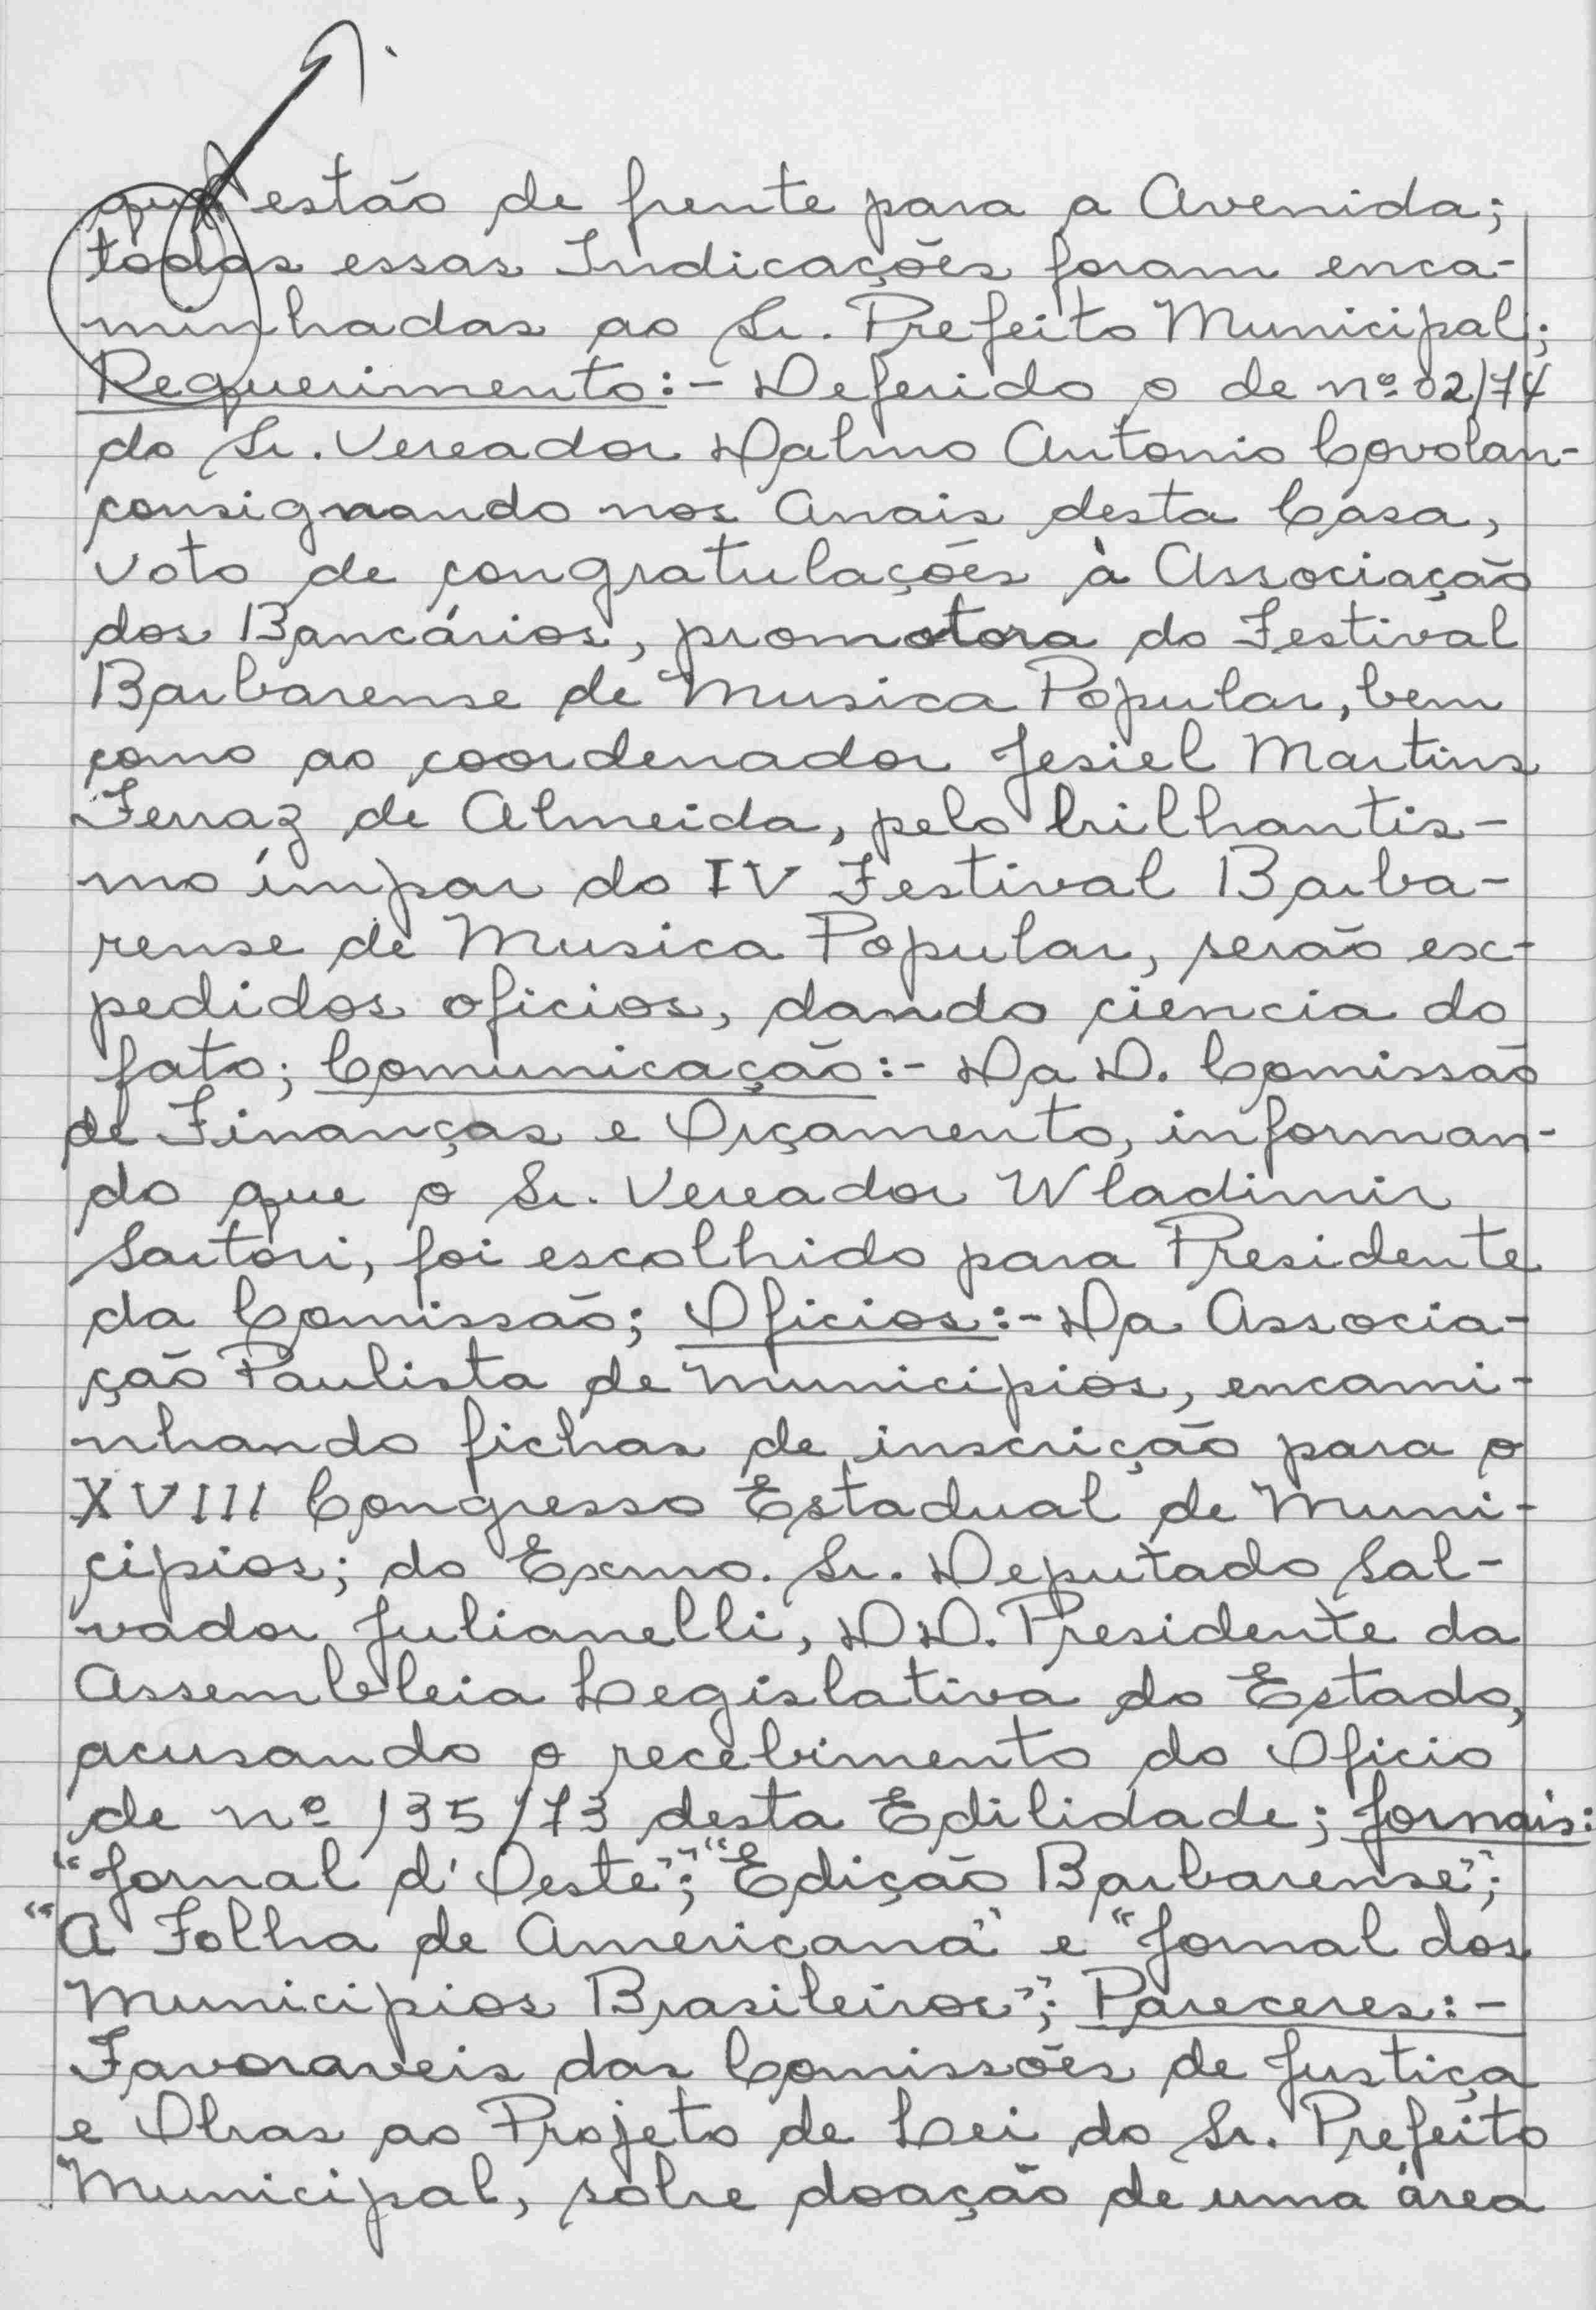 que estão de frente para a Avenida;
todas essas Indicações foram enca-
minhadas ao Sr. Prefeito Municipal;
Requerimento:- Deferido o de nº 02/74
do Sr. Vereador Dalmo Antonio Covolan-
consignando nos Anais desta Casa,
voto de congratulações à Associação
dos Bancários, promotora do Festival
Barbarense de Musica Popular, bem
como ao coordenador Jesiel Martins
Ferraz de Almeida, pelo brilhantis-
mo ímpar do IV Festival Barba-
rense de Musica Popular, serão ex-
pedidos oficios, dando ciencia do
fato; Comunicação:- Da D. Comissão
de Finanças e Orçamento, informan-
do que o Sr. Vereador Wladimir
Sartori, foi escolhido para Presidente
da Comissão; Oficios:- Da Associa-
ção Paulista de Municipios, encami-
nhando fichas de inscrição para o
XVIII Congresso Estadual de Muni-
cipios; do Exmo. Sr. Deputado Sal-
vador Julianelli, DD. Presidente da
Assembleia Legislativa do Estado,
acusando o recebimento do Oficio
de nº 135/73 desta Edilidade; Jornais:
"Jornal d'Oeste"; "Edição Barbarense";
"A Folha de Americana" e "Jornal dos
Municipios Brasileiros"; Pareceres:-
Favoraveis das Comissões de Justiça
e Obras ao Projeto de Lei do Sr. Prefeito
Municipal, sobre doação de uma área